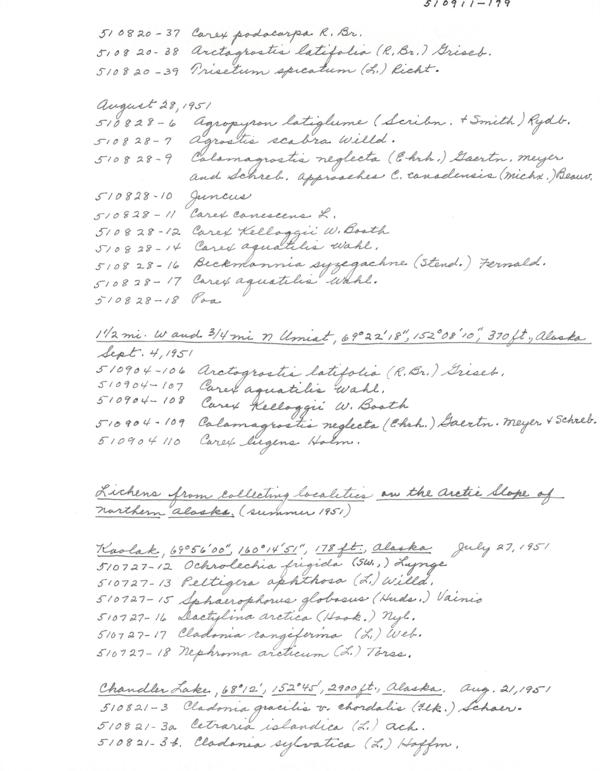 510911-179
510820-37 Carex podocarpa R. Br.
510820-38 Arctagrostis latifolia (R. Br.) Griseb.
510820-39 Trisetum spicatum (L.) Richt.
August 28, 1951
510828-6 Agropyron latiglume (Scribn. & Smith) Rydb.
510828-7 Agrostis scabra Willd.
510828-9 Calamagrostis neglecta (Ehrh.) Gaertn. Meyer
and Schreb. approaches C. canadensis (Michx.) Beauv.
510828-10 Juncus
510828-11 Carex canescens L.
510828-12 Carex Kelloggii W. Booth
510828-14 Carex aquatilis Wahl.
510828-16 Beckmannia syzegachne (Steud.) Fernald.
510828-17 Carex aquatilis Wahl.
510828-18 Poa
1 1/2 mi. W and 3/4 mi N Umiat, 69°22'18", 152°08'10", 370 ft., Alaska
Sept. 4, 1951
510904-106 Arctogrostis latifolia (R. Br.) Griseb.
510904-107 Carex aquatilis Wahl.
510904-108 Carex Kelloggii W. Booth
510904-109 Calamagrostis neglecta (Ehrh.) Gaertn. Meyer & Schreb.
510904 110 Carex lugens Holm.
Lichens from collecting localities on the Arctic Slope of
Northern Alaska. (summer 1951)
Kaolak, 69°56'00", 160°14'51", 178 ft., Alaska July 27, 1951
510727-12 Ochrolechia frigida (Sw.) Lynge
510727-13 Peltigera aphthosa (L.) Willd.
510727-15 Sphaerophorus globosus (Huds.) Vainio
510727-16 Dactylina arctica (Hook.) Nyl.
510727-17 Cladonia rangiferina (L.) Web.
510727-18 Nephroma arcticum (L.) Torss.
Chandler Lake, 68°12', 152°45', 2900 ft., Alaska. Aug. 21, 1951
510821-3 Cladonia gracilis v. chordalis (Flk.) Schaer.
510821-3a Cetraria islandica (L.) Ach.
510821-3b. Cladonia sylvatica (L.) Hoffm.